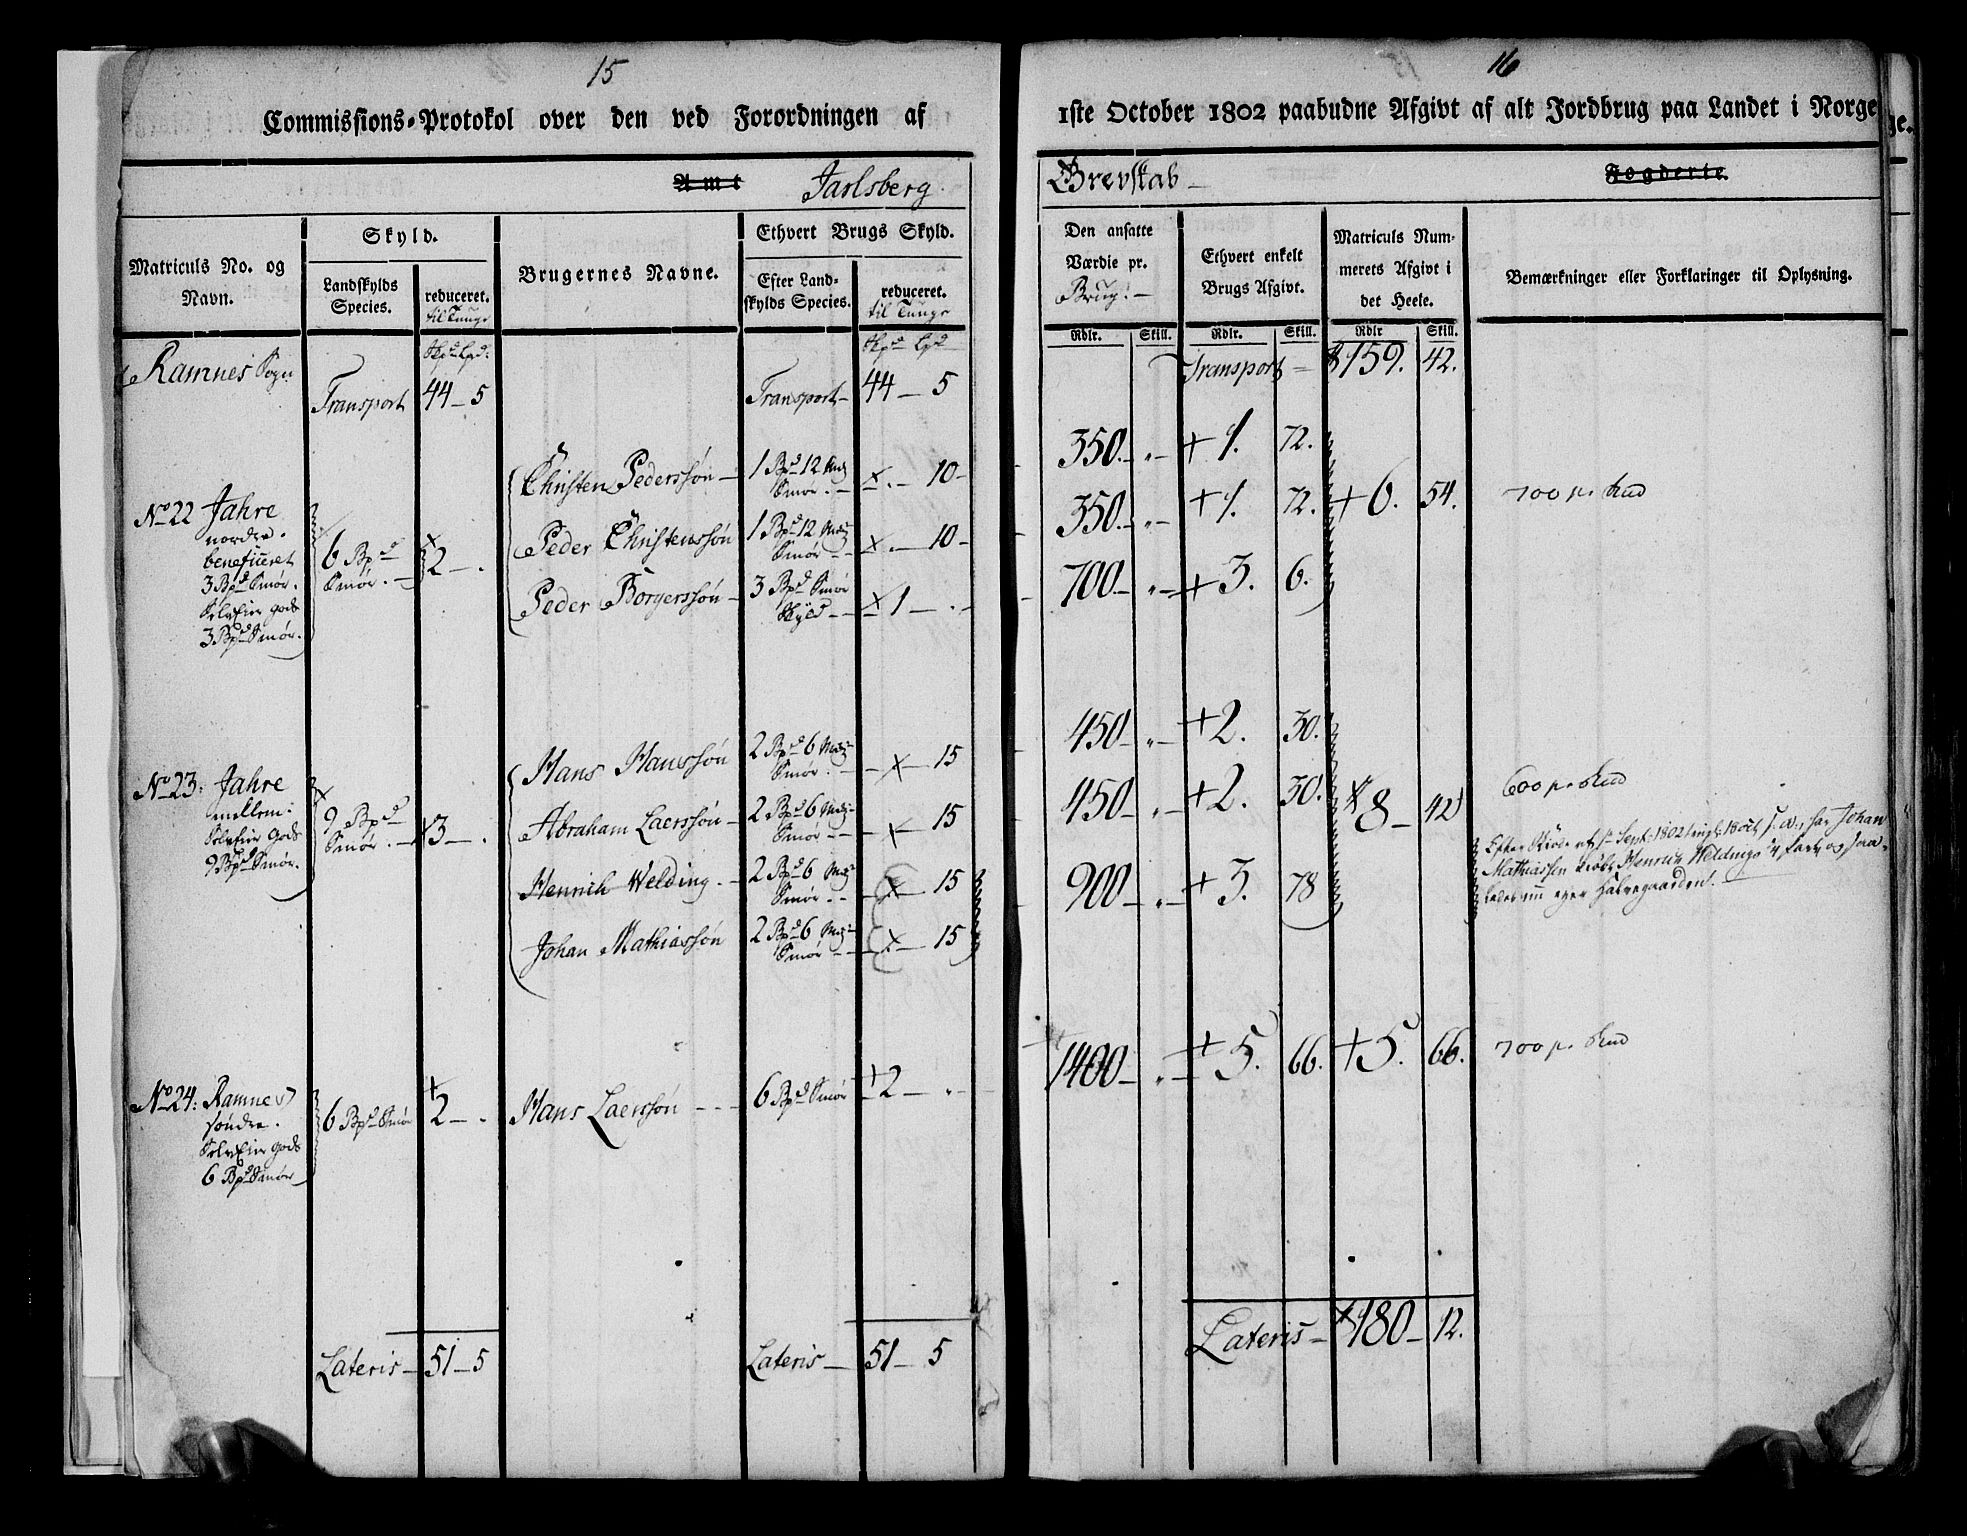 15
Commissions-Protokol over den ved Forordningen af
Amt Jarlsberg
Matriculs No. og Navn.
Skyld.
Landskylds Species.
reduceret. til Tunge
Brugernes Navne.
Ethvert Brugs Skyld.
Efter Landskylds Species.
reduceret. til Tunge
Ramnes Sogn Transport 44 – 5 Transport – 44 – 5
Skpd Lpd Skpd Lpd
No 22 Jahre
nordre.
beneficeret
3 Bpd Smør.
SelvEier Gods
3 Bpd Smør.
6 Bpd Smør. – 2 – .
Christen Pederssøn – 1 Bpd 12 Mrk Smør. – . – 10 –
Peder Christenssøn 1 Bpd 12 Mrk Smør – . – 10 –
Peder Borgerssøn – 3 Bpd Smør Skyld – 1 – . –
No 23: Jahre
mellem:
SelvEier Gods
9 Bpd Smør.
9 Bpd Smør. – 3 – .
Hans Hanssøn 2 Bpd 6 Mrk Smør. – 15
Abraham Laerssøn – 2 Bpd 6 Mrk Smør – 15
Henrich Welding. – 2 Bpd 6 Mrk Smør – 15
Johan Mathiassøn 2 Bpd 6 Mrk Smør – 15
No 24: Ramnes
søndre.
SelvEier Gods
6 Bpd Smør
6 Bpd Smør 2 – .
Hans Laerssøn – – – 6 Bpd Smør 2 – "
Lateris – 51 – 5 Lateris – 51 – 5
16
1ste October 1802 paabudne Afgivt af alt Jordbrug paa Landet i Norge
Grevskab – Fogderie.
Den ansatte Værdie pr. Brug. –
Ethvert enkelt Brugs Afgivt.
Matriculs Nummerets Afgivt i det Heele.
Bemærkninger eller Forklaringer til Oplysning.
Rdlr. Skill. Rdlr. Skill. Rdlr Skill.
Transport = 159. 42.
350. – " – + 1. 72.
350. – " – + 1. 72. + 6. 54. 700 pr. Hud
700 – " – + 3. 6.
450 – " – + 2. 30.
450 – " – + 2. 30. 8 – 42 600 pr. Hud
900 – " – + 3. 78
Efter Skiøde af 1st Sept: 1802 tingl: 18 Oct s. a., har Johan
Mathiassen kiøbt Henrich Weldings 1/4 part og saa-
ledes nu eyer Halvegaarden.
1400 – " – + 5. 66. + 5. 66. 700 pr. Hud
Lateris – 180 – 12.